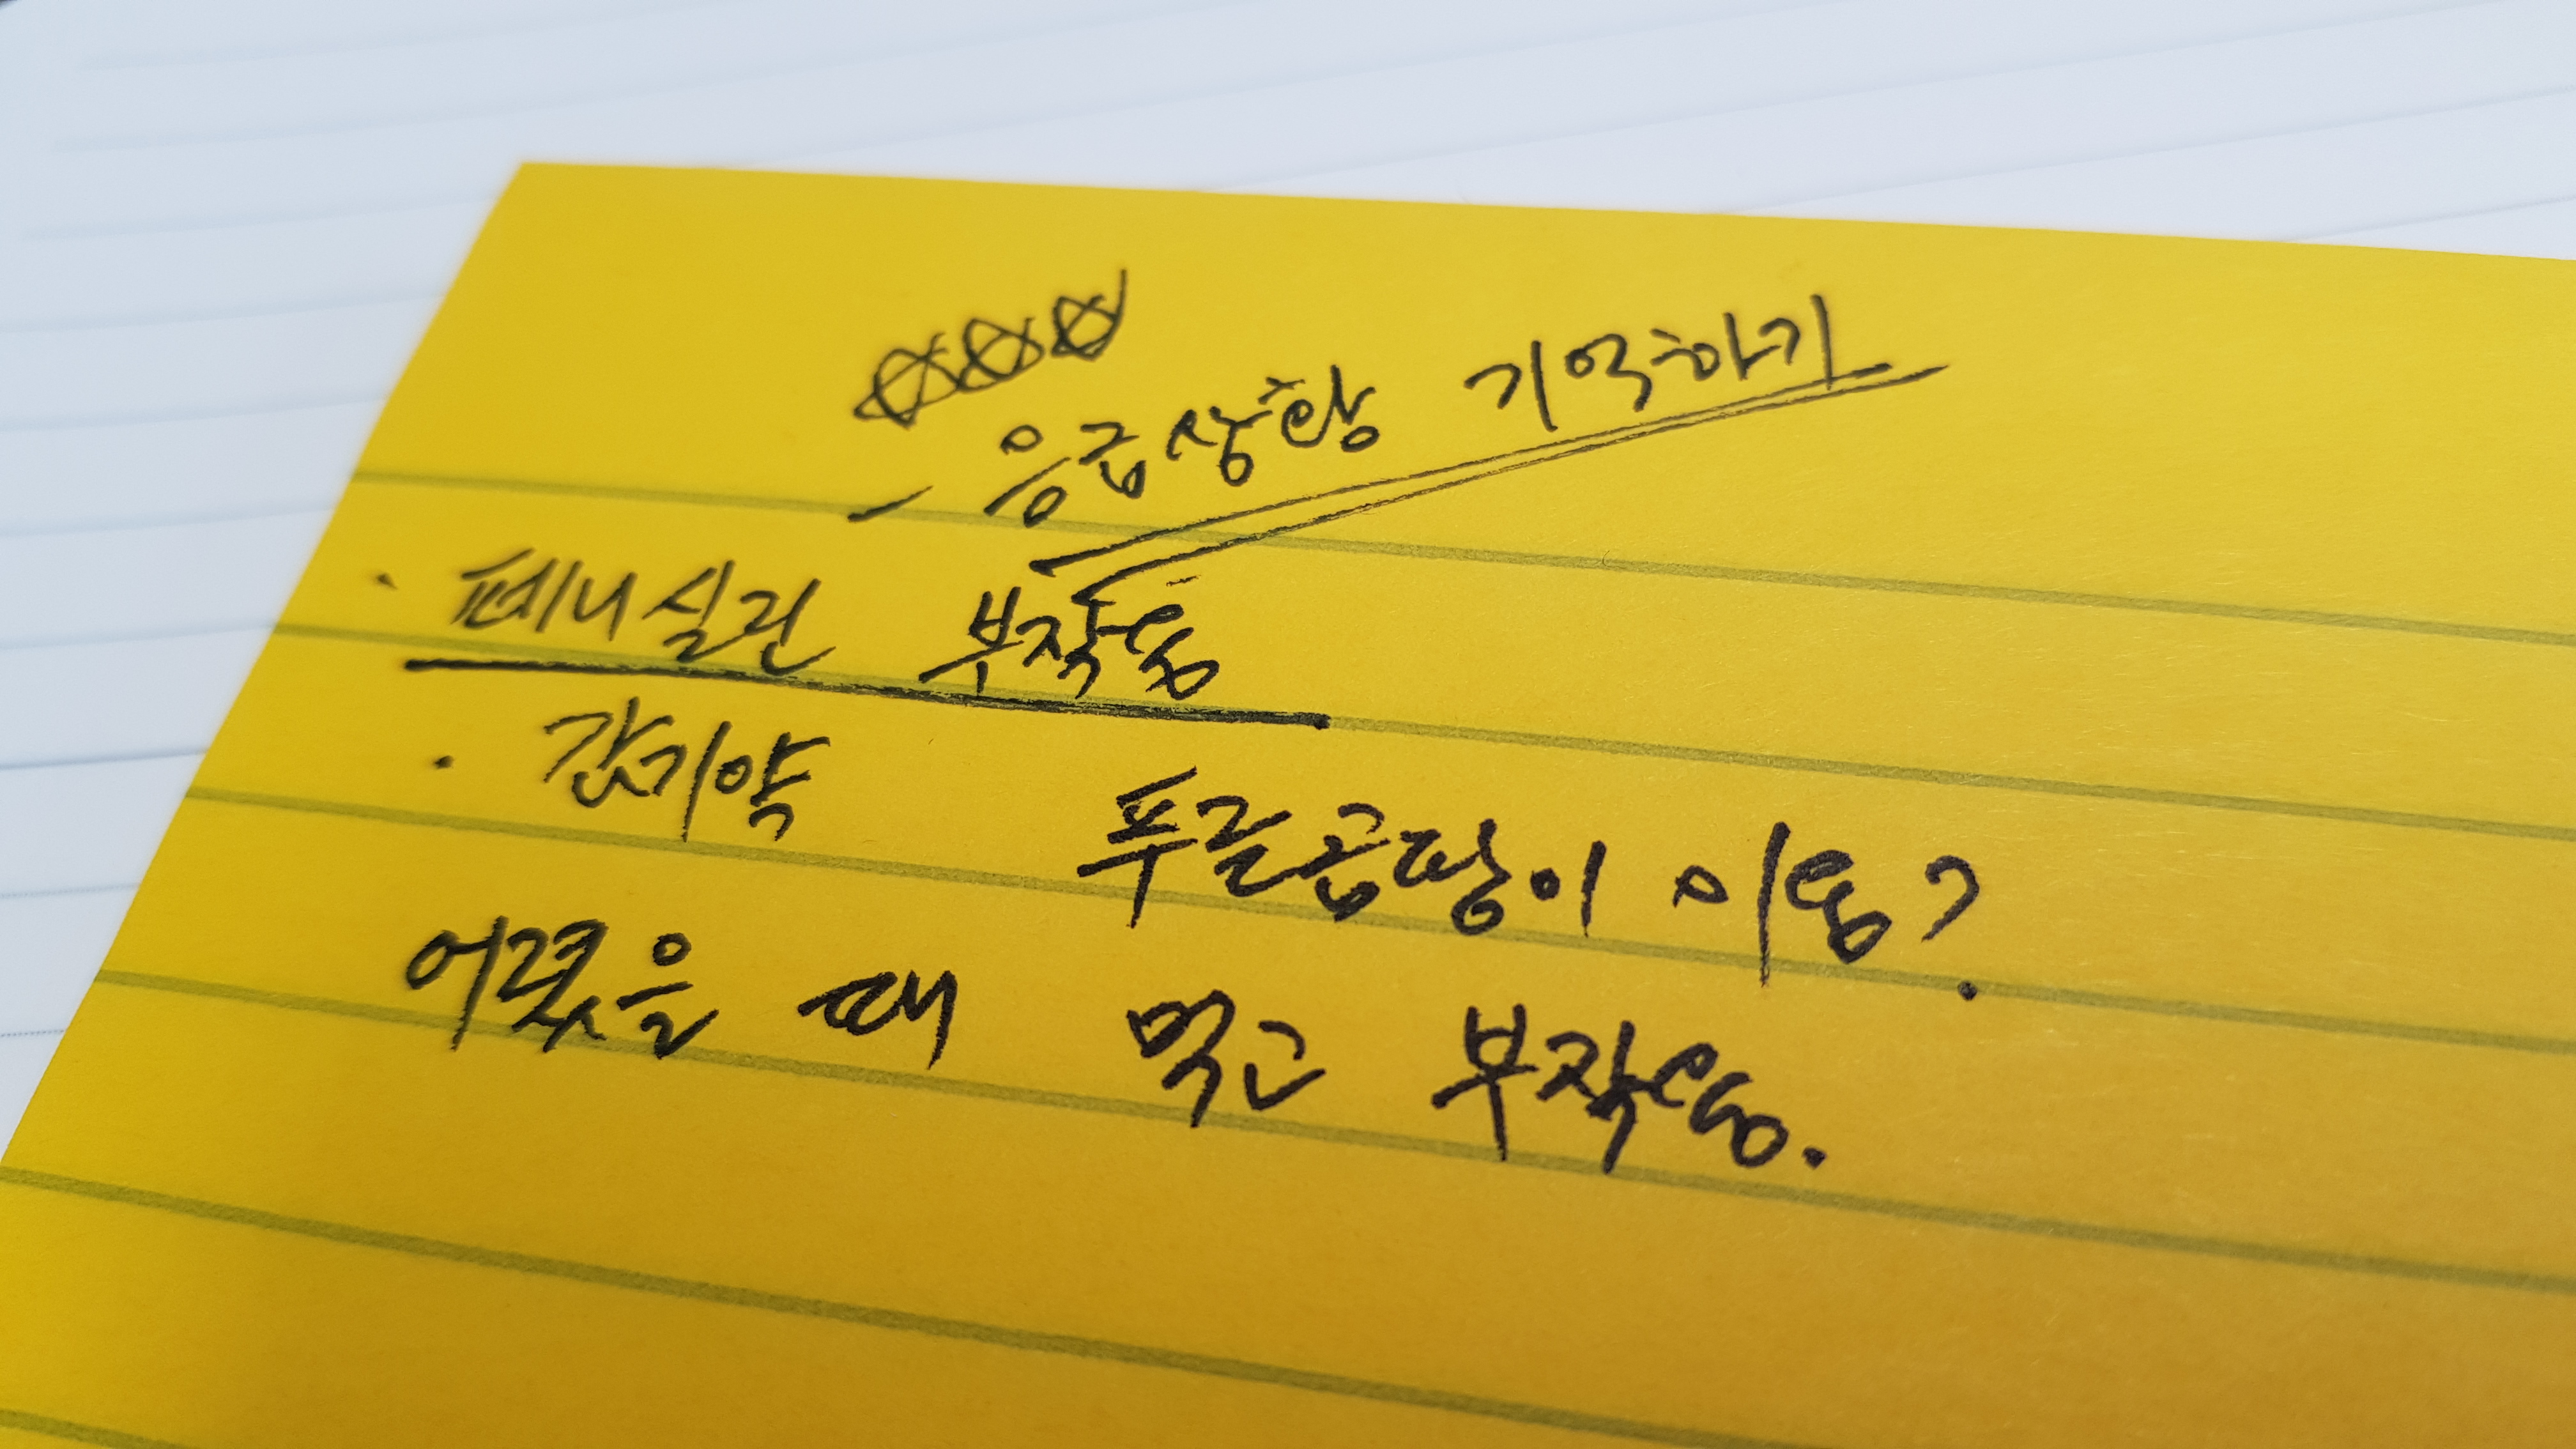 ☆☆☆
- 응급상황 기억하기
· 페니실린 부작용
· 감기약 푸른곰팡이 이용?
어렸을 때 먹고 부작용.